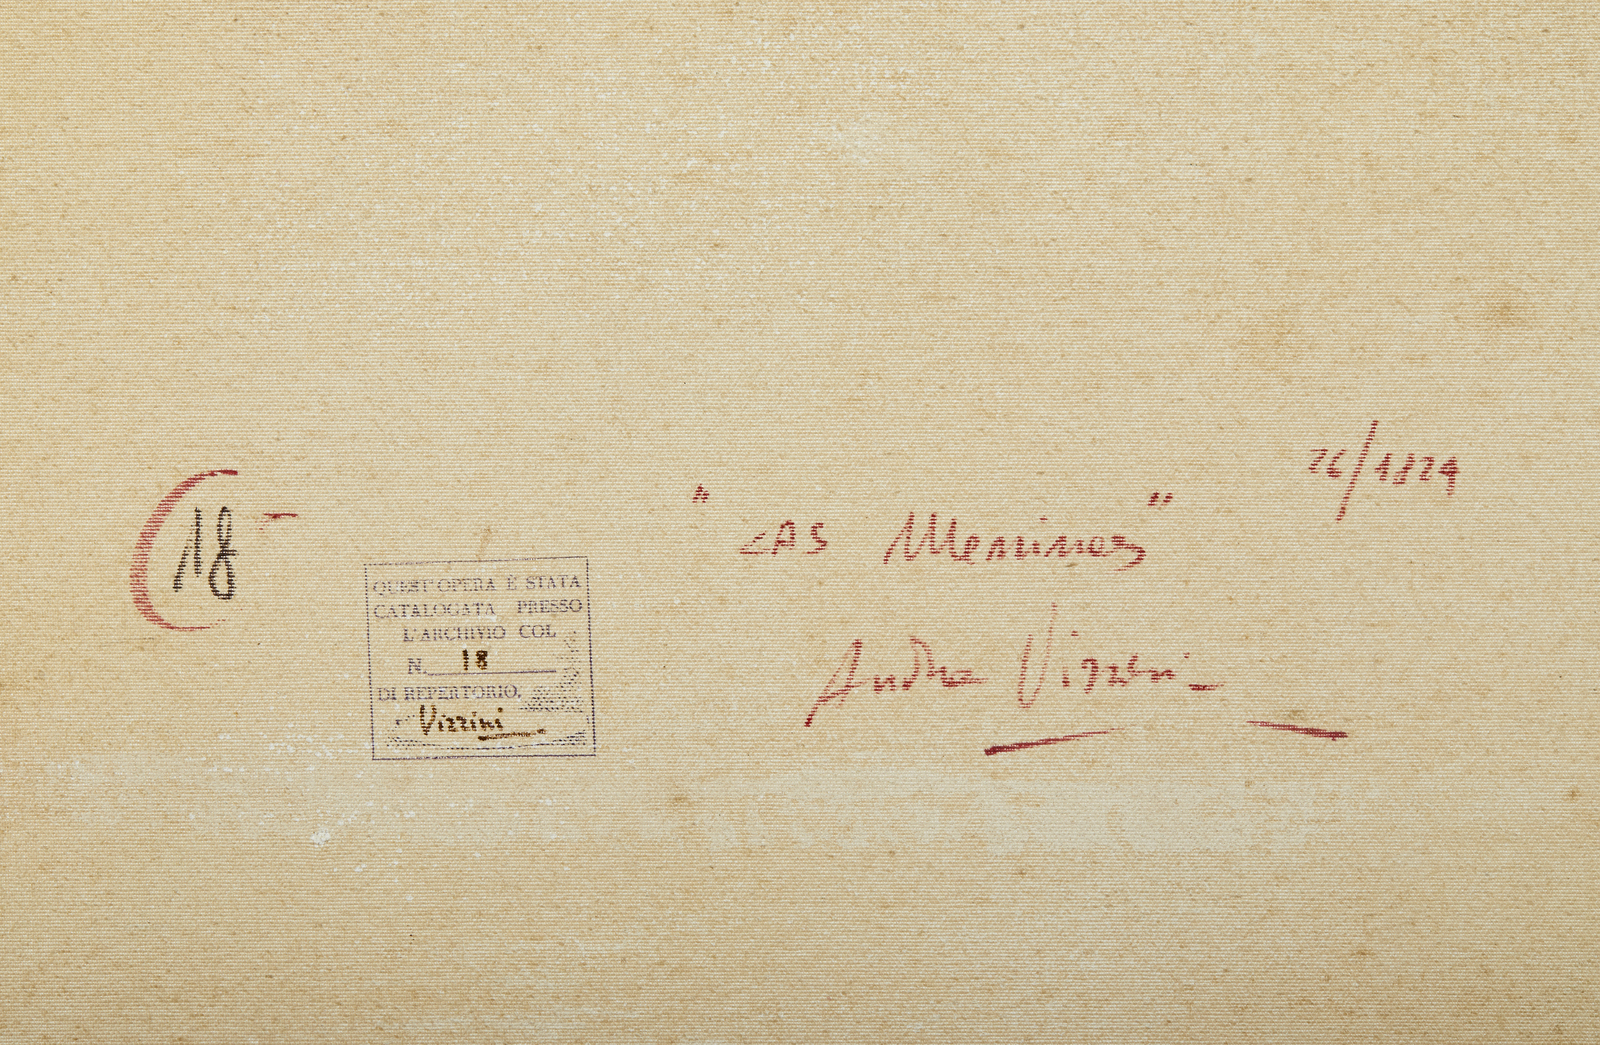 18
"LAS Meninas"
Andrea Vizzini
QUEST'OPERA È STATA
CATALOGATA PRESSO
L'ARCHIVIO COL
N. 18
DI REPERTORIO.
Vizzini